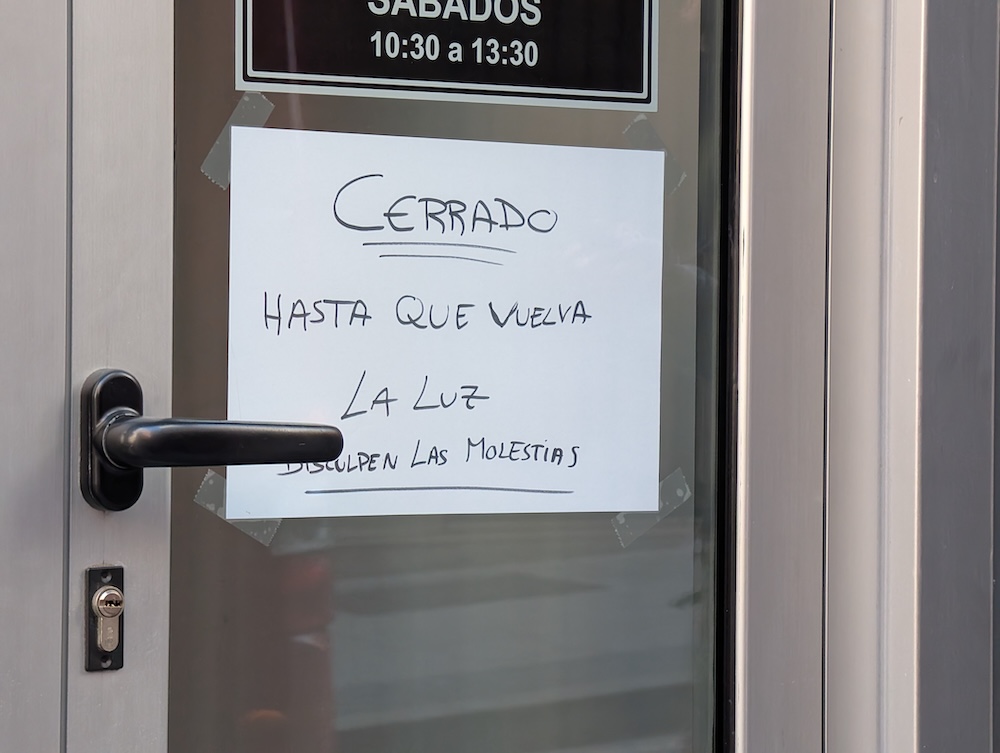 SÁBADOS
10:30 a 13:30
CERRADO
HASTA QUE VUELVA
LA LUZ
DISCULPEN LAS MOLESTIAS